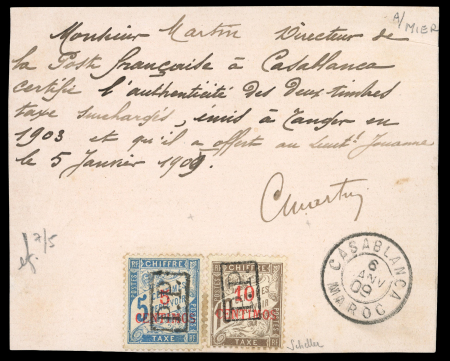 A/MIER
Monsieur Martin Directeur de
la Poste française à Casablanca
certifie l'authenticité des deux timbres
taxe surchargés, émis à Tanger en
1903 et qu'il a offert au lieut! Jouanne
le 5 Janvier 1909.
CMartin
7/5
CASABLANCA
6
JANV
09
MAROC
CHIFFRE
5
5
CENTIMOS
TAXE
CHIFFRE
10
CENTIMOS
TAXE
Scheller